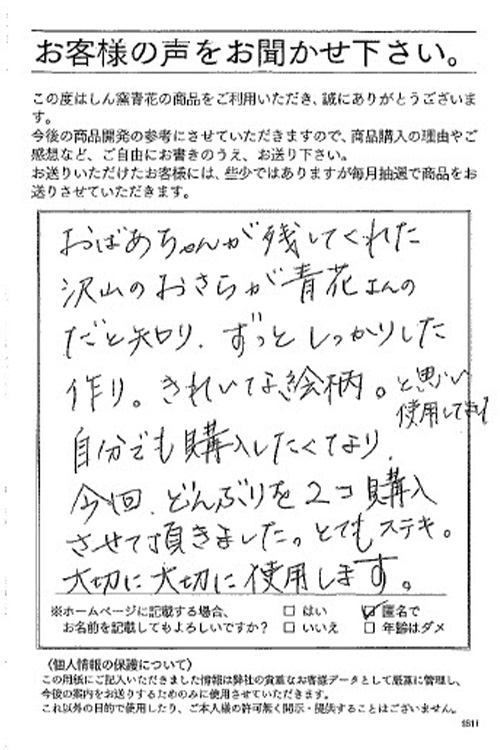 お客様の声をお聞かせ下さい。
この度はしん窯青花の商品をご利用いただき、誠にありがとうございま
す。
今後の商品開発の参考にさせていただきますので、商品購入の理由やご
感想など、ご自由にお書きのうえ、お送り下さい。
お送りいただけたお客様には、些少ではありますが毎月抽選で商品をお
送りさせていただきます。
おばあちゃんが残してくれた
沢山のおさらが青花さんの
だと知り、ずっとしっかりした
作り。きれいな絵柄。と思い
使用してます
自分でも購入したくなり、
今回、どんぶりを2コ購入
させて頂きました。とてもステキ。
大切に大切に使用します。
※ホームページに記載する場合、 □ はい ☑ 匿名で
お名前を記載してもよろしいですか？ □ いいえ □ 年齢はダメ
〈個人情報の保護について〉
この用紙にご記入いただきました情報は弊社の貴重なお客様データとして厳重に管理し、
今後の案内をお送りするためのみに使用させていただきます。
これ以外の目的で使用したり、ご本人様の許可無く開示・提供することはございません。